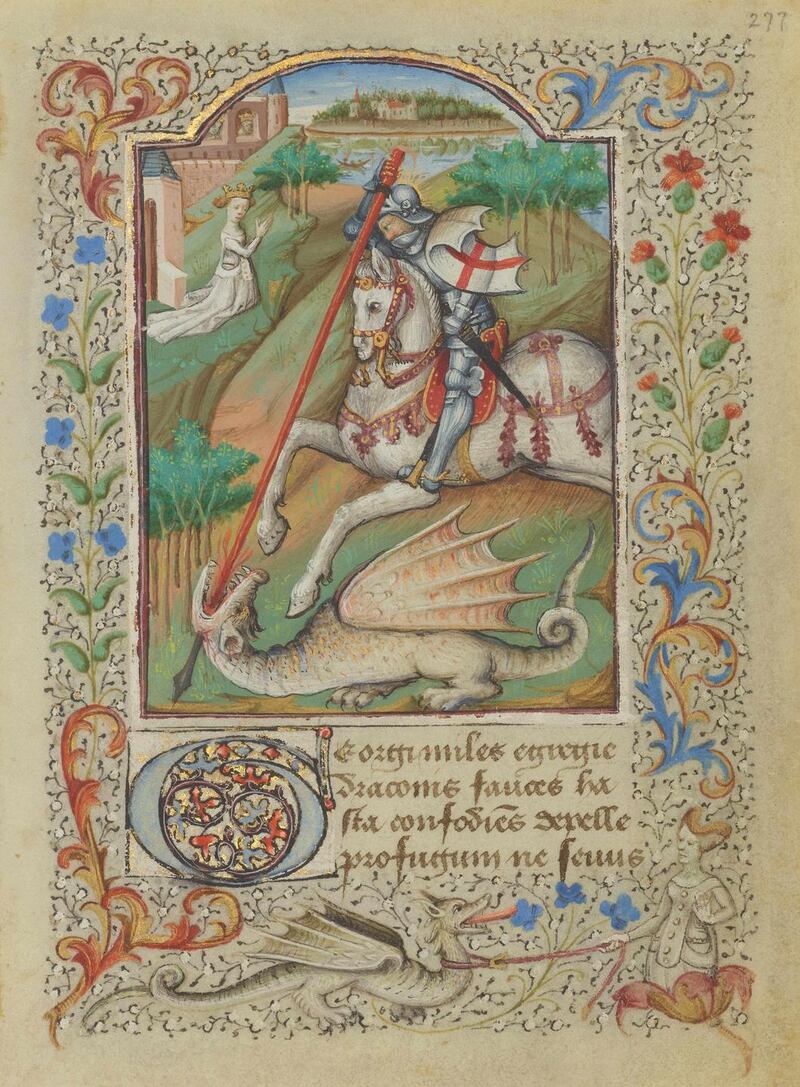 277
Georgi miles egregie
draconis fauces ha
sta confodiēs depelle
profugum ne seuus